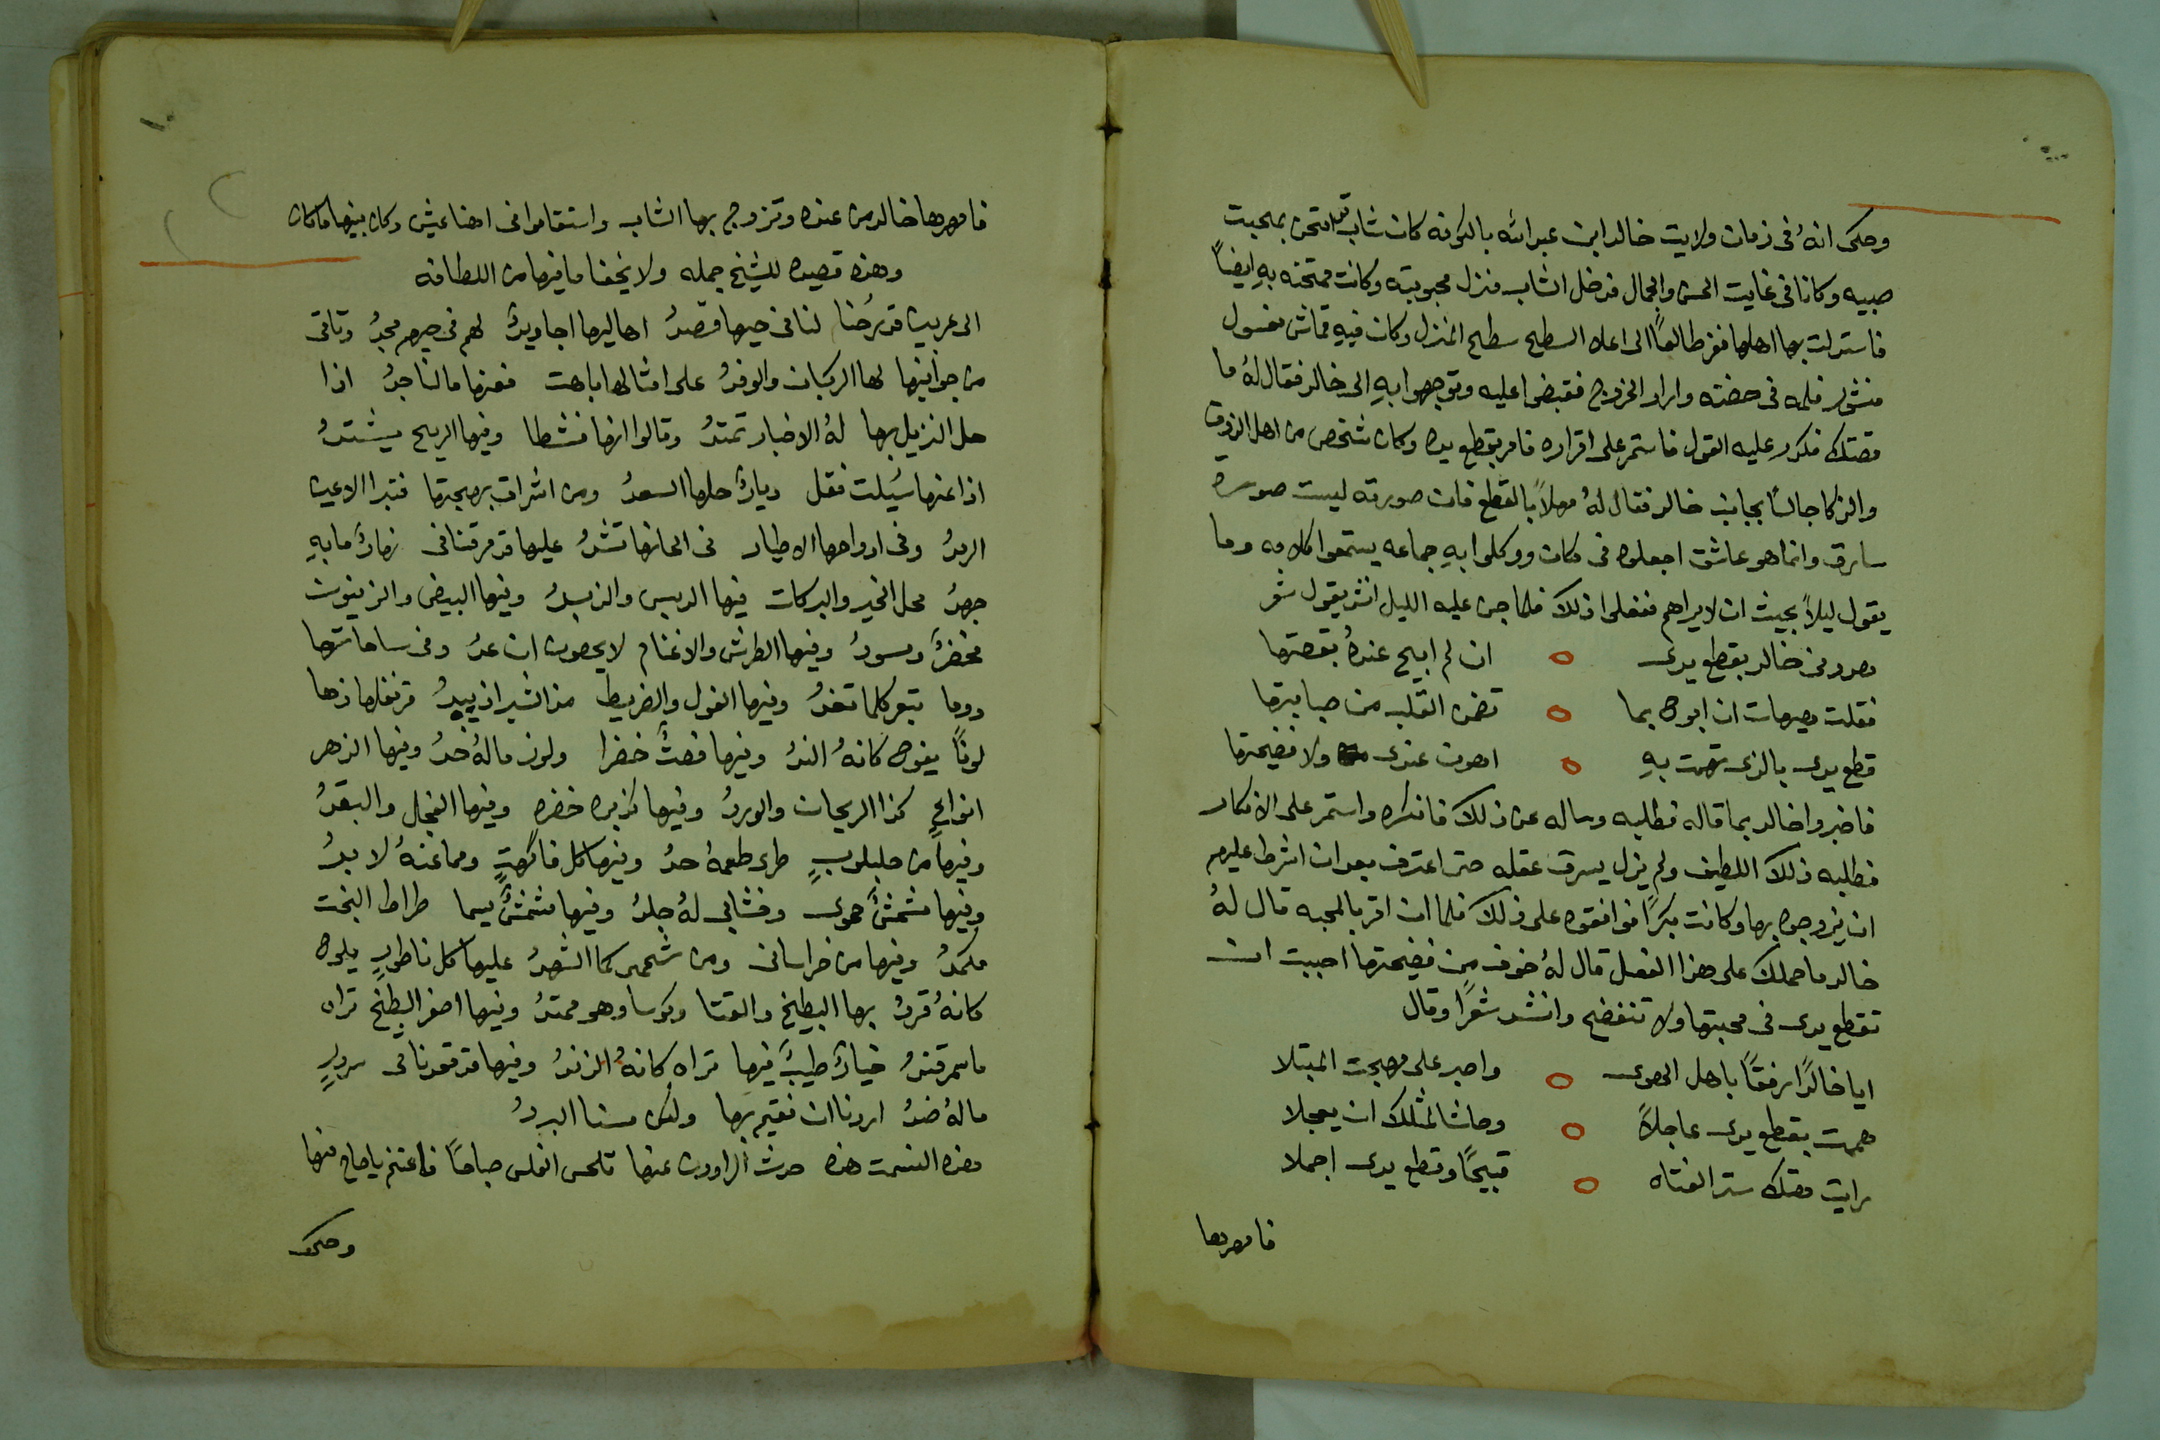 وحكى انهُ فى زمان ولايت خالد ابن عبدالله بالكوفه كان شاب قد امتحن بمحبت
صبيه وكانا فى غايت الحسن والجمال فدخل الشاب منزل محبوبته وكانت ممتحنه بهِ ايضاً
فاستدلت بهما اهلها ففز طالعاً الى اعلا السطيح سطيح المنزل وكان فيهِ قماش مغسول
منشور فلمه فى حضنه واراد الخروج فقبضوا عليه وتوجهوا بهِ الى خالد فقال لهُ ما
قصتك فكرر عليه القول فاستمر على اقراره فامر بقطع يده وكان شخص من اهل الذوق
والذكا جالساً بجانب خالد فقال لهُ مهلاً بالقطع فان صورته ليست صورة
سارق وانما هو عاشق اجعلوه فى مكان ووكلوا بهِ جماعه يستمعوا كلامه وما
يقول ليلاً بحيث ان لا يراهم ففعلوا ذلك فلما جن عليه الليل انشد يقول شعر
هددنى خالد بقطع يدى ان لم ابيح عندهُ بقصتها
فقلت هيهات ان ابوح بما تضمن القلب من صبابتها
قطع يدى بالذى تهمت بهِ اهون عندى ولا فضيحتها
فاخبروا خالد بما قاله فطلبه وساله عن ذلك فانكره واستمر على الانكار
فطلبه ذلك اللطيف ولم يزل يسرق عقله حتى اعترف بعد ان اشرط عليهم
ان يزوجوه بها وكانت بكراً فوافقوه على ذلك فلما ان اقر بالمحبه قال لهُ
خالد ما حملك على هذا الفعل قال لهُ خوف من فضيحتها احببت ان
تقطع يدى فى محبتها ولا تنفضح وانشد شعراً وقال
ايا خالداً رفقاً باهل الهوى واصبر على مهجت المبتلا
هممت بقطع يدى عاجلاً وحاشا لمثلك ان يعجلا
رايت هتك ستر الفتاه قبيحاً وقطع يدى اجملا
فامهرها
فامهرها خالد من عنده وتزوج بها الشاب واستقاموا فى اهنا عيش وكان بينهما ما كان
وهذه قصيده للشيخ جمله ولا يخفا ما فيها من اللطافه
الى عربين قد رُحنا لنا فى حيها قصدُ اهاليها اجاويدٌ لهم فى حيهم مجدُ وتاتى
من جوانبها لها الركبان والوفدُ على امثالها باهت فعنها ما لنا جدُ اذا
حل النزيل بها لهُ الاخبار تمتدُ وقالوا انها منشطا وفيها الريح يشتدُ
اذا عنها سُيلت فقل ديارٌ حلها السعدُ ومن اشراق بهجتها فتبرا الاعين
الرمدُ وفى ادواحها الاطيار فى الحانها تشدُ عليها قد مرقنا فى نهارٌ ما بهِ
جهدُ محل الخير والبركات فيها الدبس والزبدُ وفيها البيض والزيتون
مخضرٌ ومسودُ وفيها الطرش والاغنام لا يحصون ان عدُ وفى ساحاتها
دوما تبعر كلما تغدُ وفيها الفول
لوناً يفوح كانهُ الندُ وفيها خضرا ولوز ما لهُ حدُ وفيها الزهر
انواعٍ كذا الريحان والوردُ وفيها كزبره خضره وفيها الفجل والبقدُ
وفيها من حلبلوبٍ طرى طعمهُ حدُ وفيها كل فاكهتٍ ومما عنهُ لا بدُ
وفيها مشمشٌ حموى وخشابى لهُ جلدُ وفيها مشمشٌ يسما
وفيها من خراسانى ومن كما الشهدُ عليها كل ناطورٍ يلوح
كانهُ قردُ بها البطيخ والقتا وكوسا وهو ممتدُ وفيها اصفر البطيخ تراه
ما سمرقندُ خيارٌ طيبٌ فيها تراه كانهُ الزندُ وفيها قد قعدنا فى سرورٍ
ما لهُ ضدُ اردنا ان نقيم بها ولكن مسنا البردُ
هذه القسمت هذه حدث الراوون عنها فاغتنم يا صاح منها
وحكى